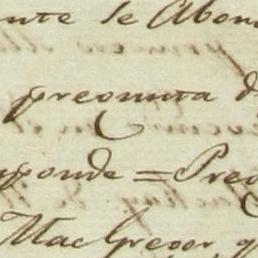 nte se Abon
preonuta d
sponde = Preg
MacGregor, q